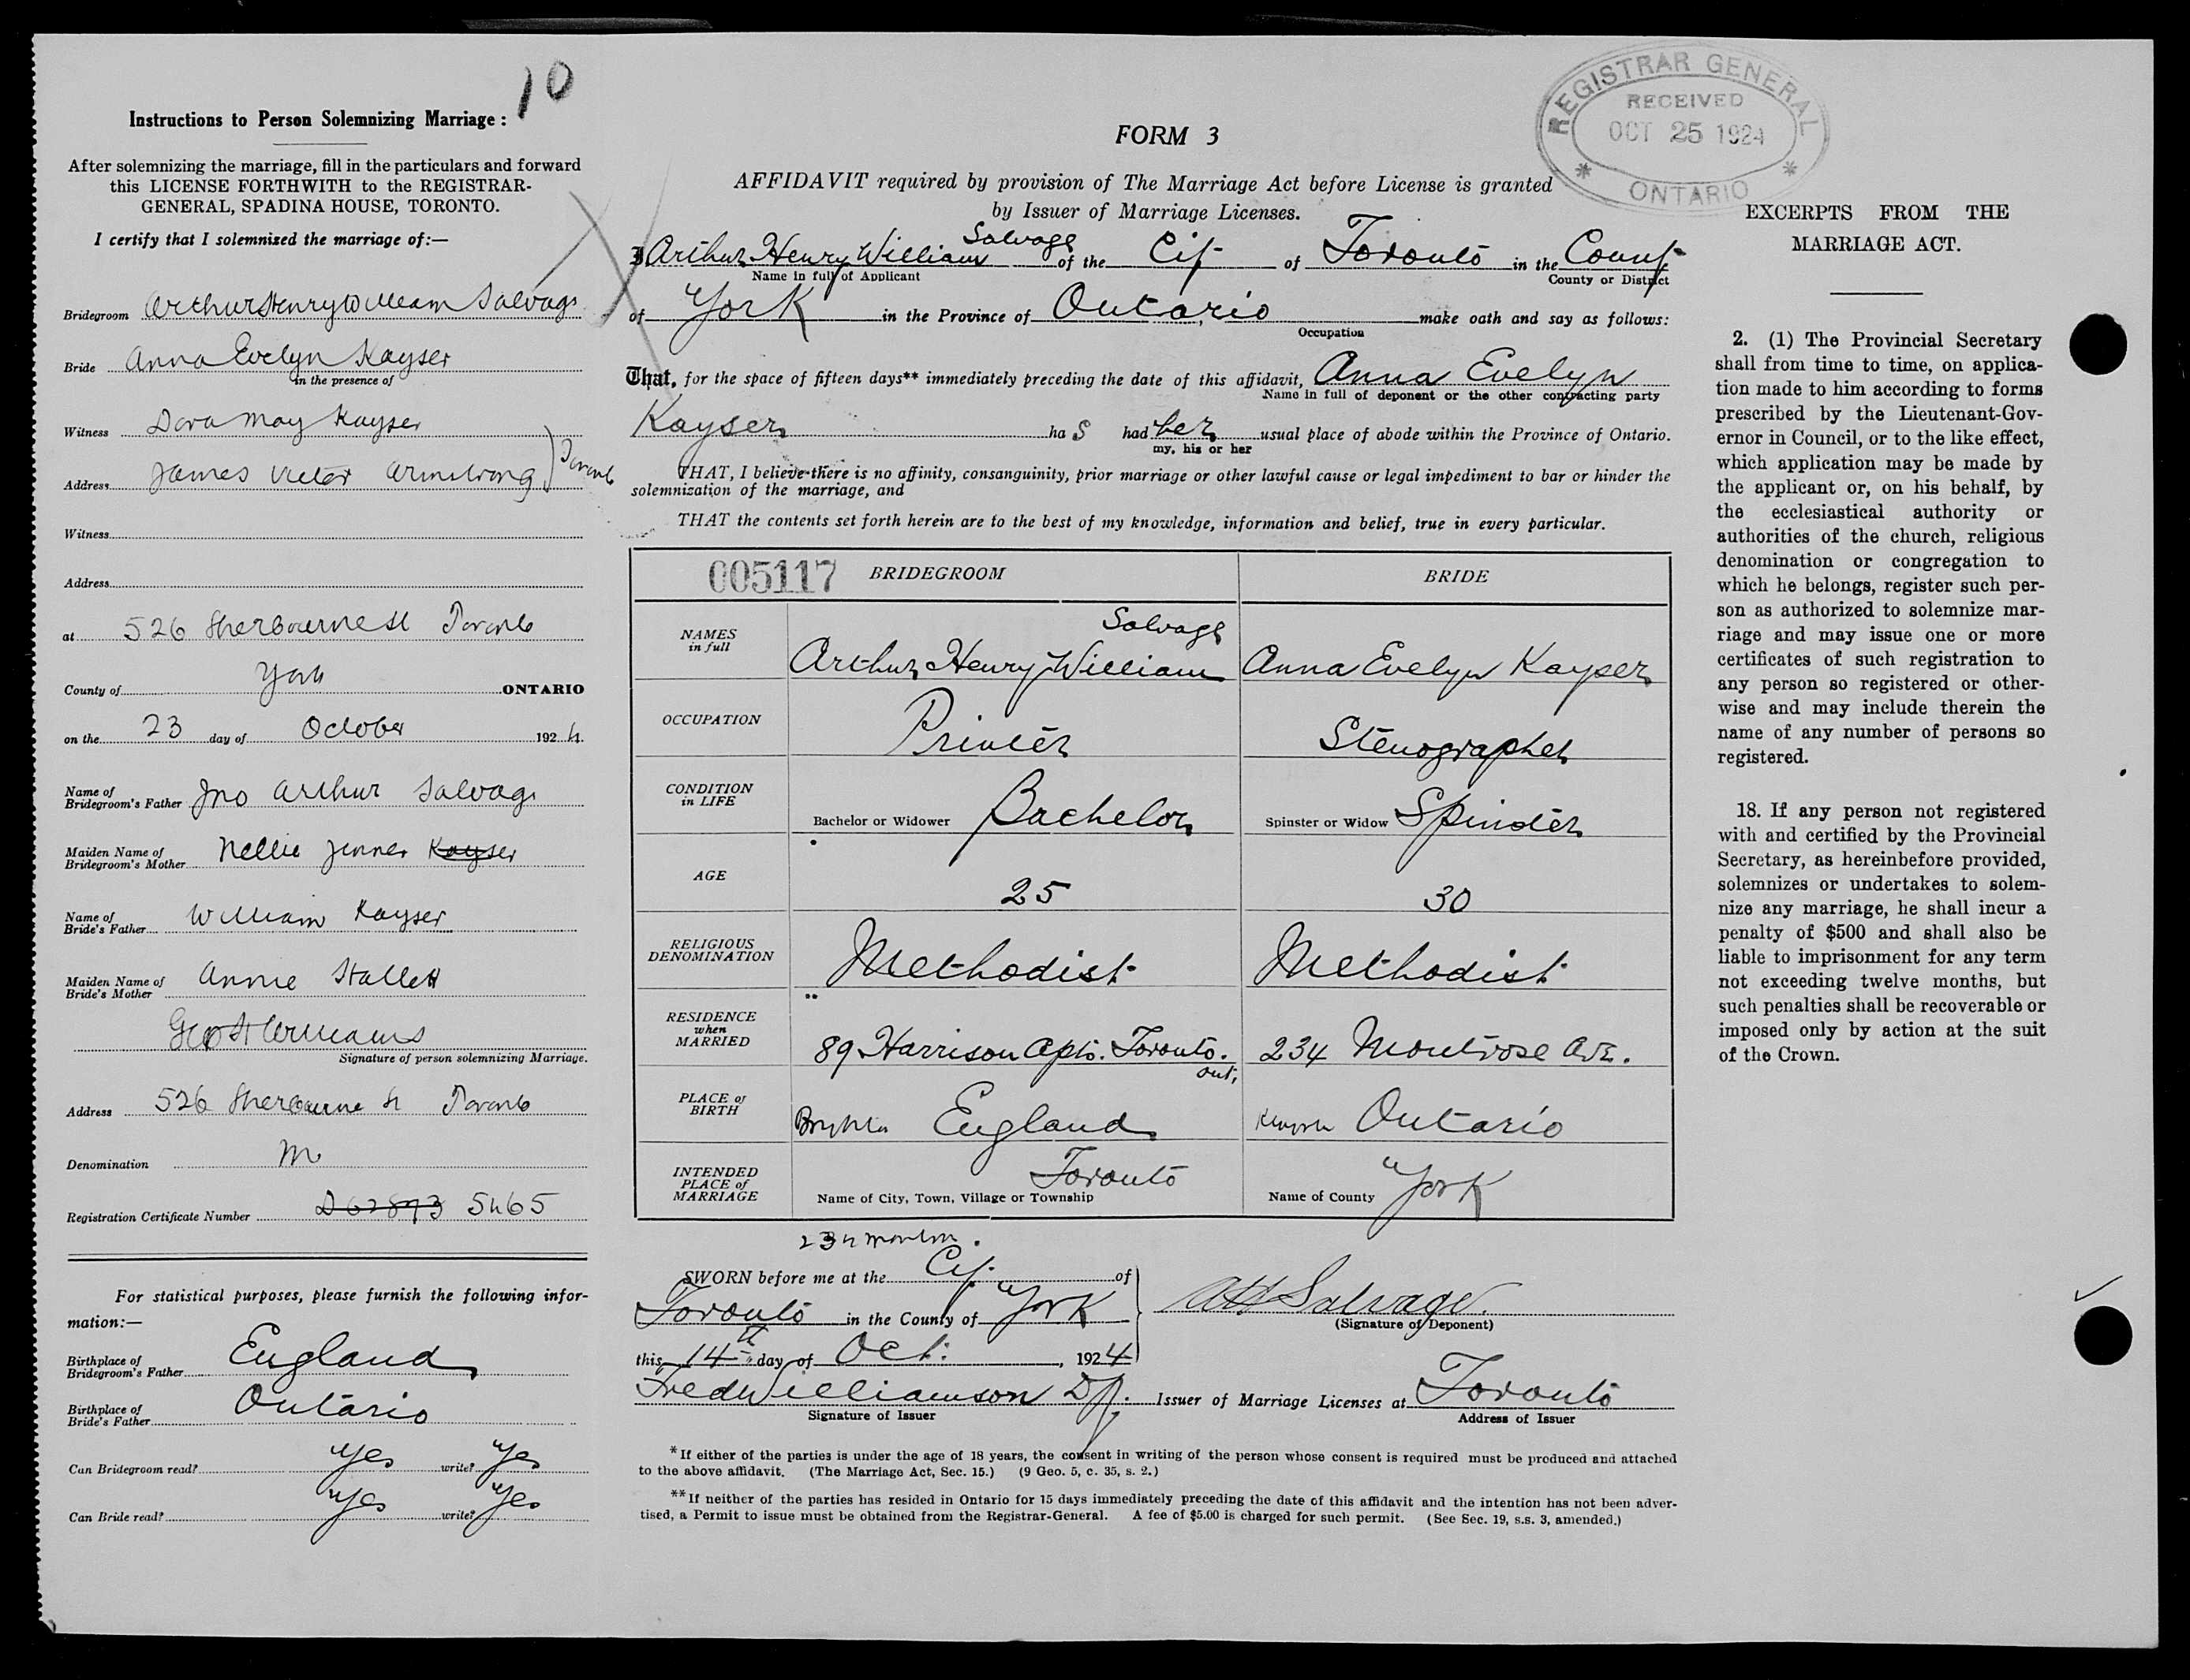 10
Instructions to Person Solemnizing Marriage :
After solemnizing the marriage, fill in the particulars and forward
this LICENSE FORTHWITH to the REGISTRAR-
GENERAL, SPADINA HOUSE, TORONTO.
I certify that I solemnized the marriage of:—
Bridegroom Arthur Henry William Salvage
Bride Anna Evelyn Kayser
in the presence of
Witness Dora May Kayser
Address James Victor Armstrong } Toronto
Witness
Address
at 526 Sherbourne St Toronto
County of York ONTARIO
on the 23 day of October 1924
Name of
Bridegroom's Father Jno Arthur Salvage
Maiden Name of
Bridegroom's Mother Nellie Jenner Kayser
Name of
Bride's Father William Kayser
Maiden Name of
Bride's Mother Annie Hallett
Geo H Williams
Signature of person solemnizing Marriage.
Address 526 Sherbourne St Toronto
Denomination M
Registration Certificate Number D62893 5465
For statistical purposes, please furnish the following infor-
mation:—
Birthplace of
Bridegroom's Father England
Birthplace of
Bride's Father Ontario
Can Bridegroom read? Yes write? Yes
Can Bride read? Yes write? Yes
FORM 3
AFFIDAVIT required by provision of The Marriage Act before License is granted
by Issuer of Marriage Licenses.
I Arthur Henry William Salvage of the City of Toronto in the County
Name in full of Applicant County or District
of York in the Province of Ontario make oath and say as follows:
Occupation
That, for the space of fifteen days** immediately preceding the date of this affidavit, Anna Evelyn
Name in full of deponent or the other contracting party
Kayser has had her usual place of abode within the Province of Ontario.
my, his or her
THAT, I believe there is no affinity, consanguinity, prior marriage or other lawful cause or legal impediment to bar or hinder the
solemnization of the marriage, and
THAT the contents set forth herein are to the best of my knowledge, information and belief, true in every particular.
005117 BRIDEGROOM BRIDE
NAMES
in full
Arthur Henry William Salvage Anna Evelyn Kayser
OCCUPATION Printer Stenographer
CONDITION
in LIFE
Bachelor or Widower Bachelor Spinster or Widow Spinster
AGE 25 30
RELIGIOUS
DENOMINATION Methodist Methodist
RESIDENCE
when
MARRIED
89 Harrison Apts. Toronto. Ont. 234 Montrose Ave.
PLACE of
BIRTH England Ontario
INTENDED
PLACE of
MARRIAGE
Name of City, Town, Village or Township Toronto Name of County York
SWORN before me at the City of
Toronto in the County of York
this 14th day of Oct. , 1924
AH Salvage.
(Signature of Deponent)
Fred Williamson Issuer of Marriage Licenses at Toronto
Signature of Issuer Address of Issuer
*If either of the parties is under the age of 18 years, the consent in writing of the person whose consent is required must be produced and attached
to the above affidavit. (The Marriage Act, Sec. 15.) (9 Geo. 5, c. 35, s. 2.)
**If neither of the parties has resided in Ontario for 15 days immediately preceding the date of this affidavit and the intention has not been adver-
tised, a Permit to issue must be obtained from the Registrar-General. A fee of $5.00 is charged for such permit. (See Sec. 19, s.s. 3, amended.)
REGISTRAR GENERAL
RECEIVED
OCT 25 1924
* ONTARIO *
EXCERPTS FROM THE
MARRIAGE ACT.
2. (1) The Provincial Secretary
shall from time to time, on applica-
tion made to him according to forms
prescribed by the Lieutenant-Gov-
ernor in Council, or to the like effect,
which application may be made by
the applicant or, on his behalf, by
the ecclesiastical authority or
authorities of the church, religious
denomination or congregation to
which he belongs, register such per-
son as authorized to solemnize mar-
riage and may issue one or more
certificates of such registration to
any person so registered or other-
wise and may include therein the
name of any number of persons so
registered.
18. If any person not registered
with and certified by the Provincial
Secretary, as hereinbefore provided,
solemnizes or undertakes to solem-
nize any marriage, he shall incur a
penalty of $500 and shall also be
liable to imprisonment for any term
not exceeding twelve months, but
such penalties shall be recoverable or
imposed only by action at the suit
of the Crown.